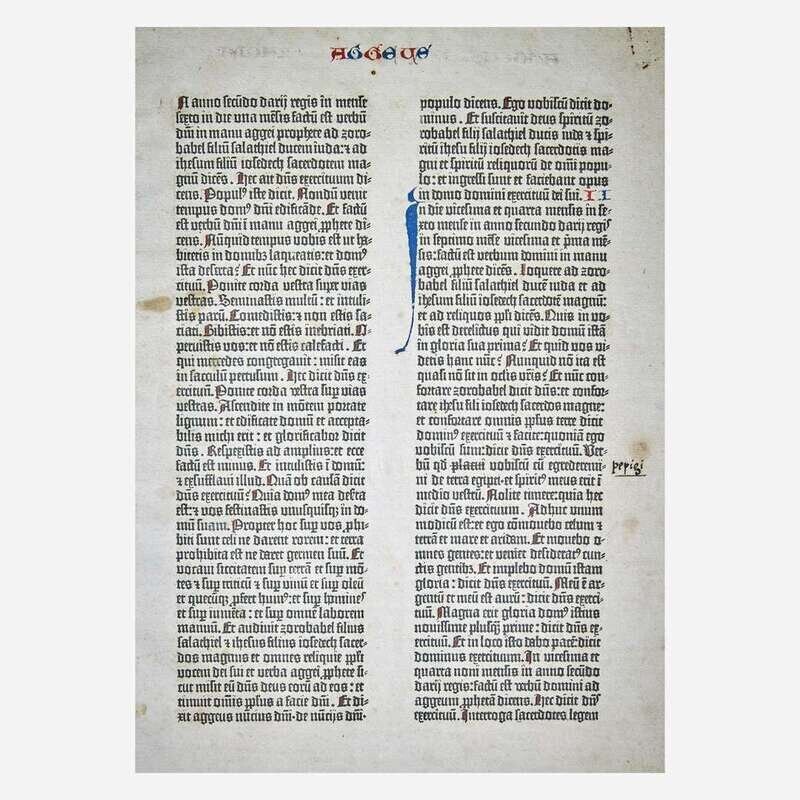 AGGEUS
N anno secūdo darij regis in mense
sexto in die una mēsis factū est verbū
dn̄i in manu aggei prophete ad zoro-
babel filiū salathiel ducem iuda: ⁊ ad
ihesum filiū iosedech sacerdotem ma-
gnū dicēs. Hec ait dn̄s exercituum di-
cens. Popul⁹ iste dicit. Nondū venit
tempus dom⁹ dn̄i edificāde. Et factū
est verbū dn̄i ī manu aggei ꝓphete di-
cēs. Nūquid tempus vobis est ut ha-
bitetis in domibꝫ laqueatis: et dom⁹
ista deserta? Et nūc hec dicit dn̄s exer-
cituū. Ponite corda vestra super vias
vestras. Seminastis multū: et intuli-
stis parū. Comedistis: ⁊ non estis sa-
ciati. Bibistis: et nō estis inebriati. O-
peruistis vos: et nō estis calefacti. Et
qui mercedes congregauit: misit eas
in sacculū pertusum. Hec dicit dn̄s ex-
ercituū. Ponite corda vestra suꝑ vias
vestras. Ascendite in mōtem portate
lignum: et edificate domū et accepta-
bilis michi erit: et glorificabor dicit
dn̄s. Respexistis ad amplius: et ecce
factū est minus. Et intulistis ī domū:
⁊ exsufflaui illud. Quā ob causā dicit
dn̄s exercituū? Quia dom⁹ mea deserta
est: ⁊ vos festinastis unusquisqꝫ in do-
mū suam. Propter hoc suꝑ vos ꝓhi-
biti sunt celi ne darent rorem: et terra
prohibita est ne daret germen suū. Et
vocaui siccitatem suꝑ terrā et suꝑ mō-
tes ⁊ suꝑ triticū ⁊ suꝑ vinū et suꝑ oleū
et quecūqꝫ ꝓfert hum⁹: et suꝑ homines
et suꝑ iumēta: et suꝑ omnē laborem
manuū. Et audiuit zorobabel filius
salathiel ⁊ ihesus filius iosedech sacer-
dos magnus et omnes reliquie ꝓpli
vocem dei sui et verba aggei ꝓphete si-
cut misit eū dn̄s deus eorū ad eos: et
timuit omīs ꝓplus a facie dn̄i. Et di-
xit aggeus nūcius dn̄i de nūcijs dn̄i
populo dicens. Ego vobiscū dicit do-
minus. Et suscitauit deus spiritū zo-
robabel filij salathiel ducis iuda ⁊ spi-
ritū ihesu filij iosedech sacerdotis ma-
gni et spiritū reliquorū de omī popu-
lo: et ingressi sunt et faciebant opus
in domo domini exercituū dei sui. II
In die vicesima et quarta mensis in se-
xto mense in anno secundo darij regis
in septimo mēse vicesima et prima mē-
sis: factū est verbum domini in manu
aggei ꝓphete dicēs. Loquere ad zoro-
babel filiū salathiel ducē iuda et ad
ihesum filiū iosedech sacerdotē magnū:
et ad reliquos ꝓpli dicēs. Quis in vo-
bis est derelictus qui vidit domū istā
in gloria sua prima? Et quid vos vi-
detis hanc nūc? Nunquid nō ita est
quasi nō sit in oclis vrīs? Et nūc con-
fortare zorobabel dicit dn̄s: et confor-
tare ihesu fili iosedech sacerdos magne:
et confortare omnis ꝓplus terre dicit
domin⁹ exercituū ⁊ facite: quoniā ego
vobiscū sum: dicit dn̄s exercituū. Ver-
bū qd̄ placui vobiscū cū egrederemi-
pepigi
ni de terra egipti: et spirit⁹ meus erit ī
medio vestrū. Nolite timere: quia hec
dicit dn̄s exercituum. Adhuc unum
modicū est: et ego cōmouebo celum ⁊
terrā et mare et aridam. Et mouebo o-
mnes gentes: et veniet desiderat⁹ cun-
ctis gentibꝫ. Et implebo domū istam
gloria: dicit dn̄s exercituū. Meū ē ar-
gentū et meū est aurū: dicit dn̄s exerci-
tuū. Magna erit gloria dom⁹ istius
nouissime plusqꝫ prime: dicit dn̄s ex-
ercituū. Et in loco isto dabo pacē: dicit
dominus exercituum. In vicesima et
quarta noni mensis in anno secūdo
darij regis: factū est verbū domini ad
aggeum ꝓphetā dicens. Hec dicit dn̄s
exercituū. Interroga sacerdotes legem